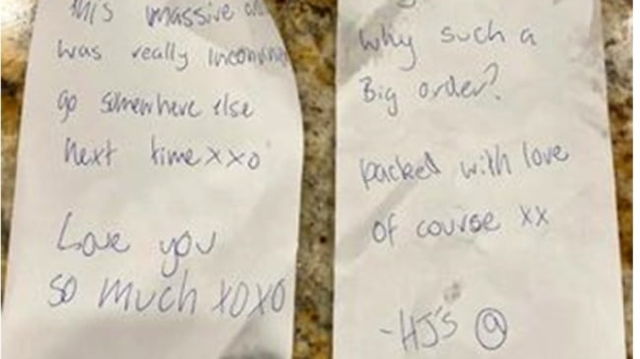 this massive
was really
go somewhere else
next time xxo
Love you
so much xoxo
Why such a
Big order?
packed with love
of course xx
-HJ's @